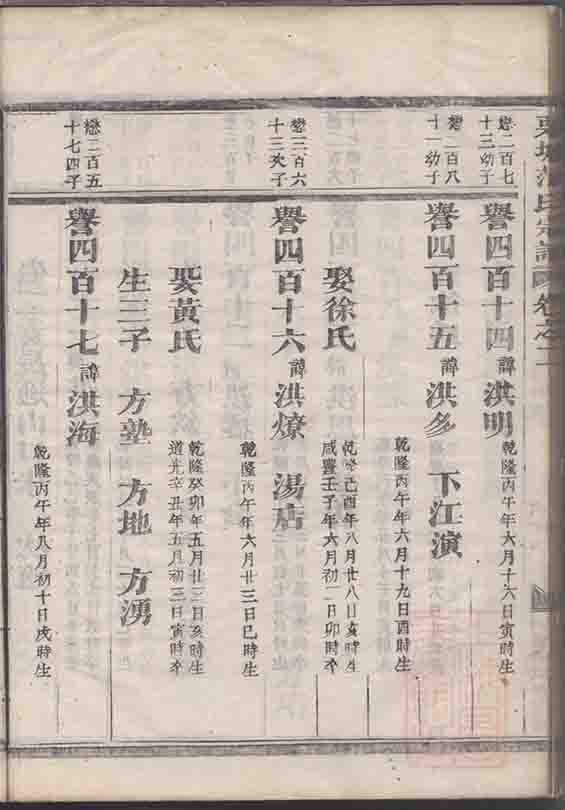 氏宗譜 卷之二
懋二百七
十三幼子
譽四百十四 諱洪明
乾隆丙午年六月十六日寅時生
懋二百八
十一幼子
譽四百十五 諱洪多 下江演
乾隆丙午年六月十九日酉時生
娶徐氏
乾隆己酉年八月廿八日亥時生
咸豐壬子年六月初二日卯時卒
懋二百六
十三次子
譽四百十六 諱洪燎 湯店
乾隆丙午年六月廿三日巳時生
娶黃氏
乾隆癸卯年五月廿三日亥時生
道光辛丑年五月初三日寅時卒
生三子 方塾 方地 方湧
懋二百五
十七四子
譽四百十七 諱洪海
乾隆丙午年八月初十日戌時生